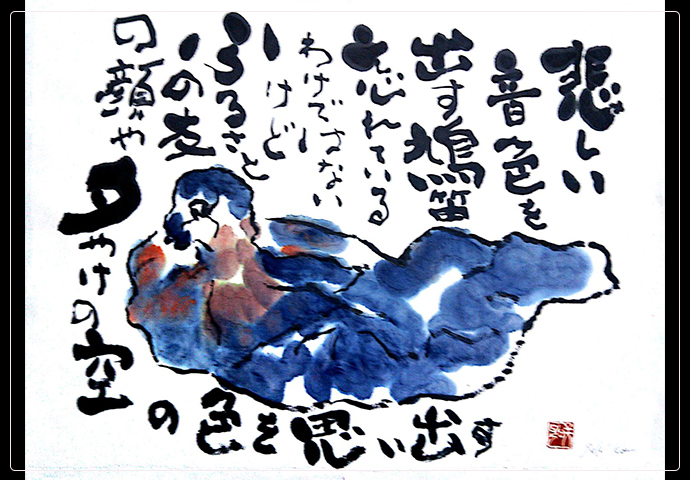 悲しい
音色を
出す鳩笛
忘れている
わけではない
けど
ふるさと
の友
の顔や
夕やけの空
の色を思い出す